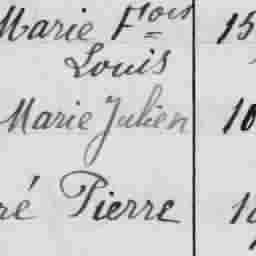 Marie Fçois 15
Louis
Marie Julien 10
ré Pierre